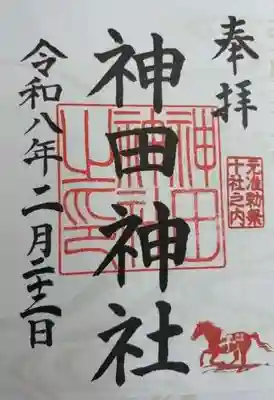 奉拝
元准勅祭
十社之内
神田神社
神田
神社
之印
令和八年二月二十三日